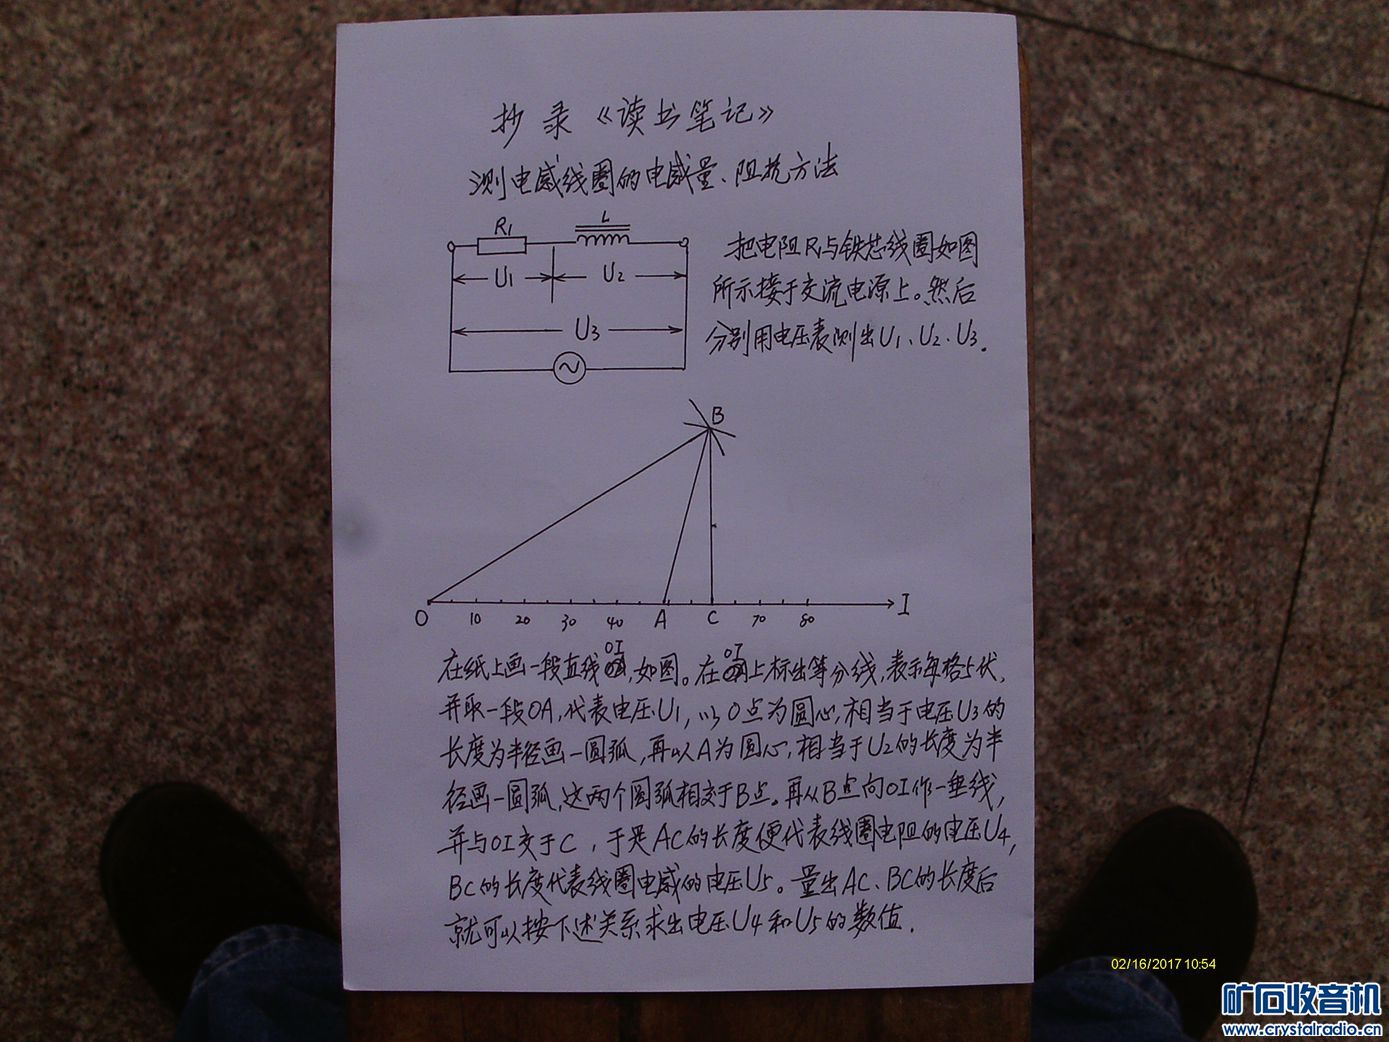 抄录《读书笔记》
测电感线圈的电感量、阻抗方法
R1
L
U1
U2
U3
把电阻R1与铁芯线圈如图
所示接于交流电源上。然后
分别用电压表测出U1、U2、U3.
B
O 10 20 30 40 A C 70 80 I
在纸上画一段直线OI,如图。在OI上标出等分线,表示每格5伏,
并取一段OA,代表电压U1,以O点为圆心,相当于电压U3的
长度为半径画一圆弧,再以A为圆心,相当于U2的长度为半
径画一圆弧,这两个圆弧相交于B点。再从B点向OI作一垂线,
并与OI交于C,于是AC的长度便代表线圈电阻的电压U4,
BC的长度代表线圈电感的电压U5。量出AC、BC的长度后
就可以按下述关系求出电压U4和U5的数值.
02/16/2017 10:54
矿石收音机
www.crystalradio.cn